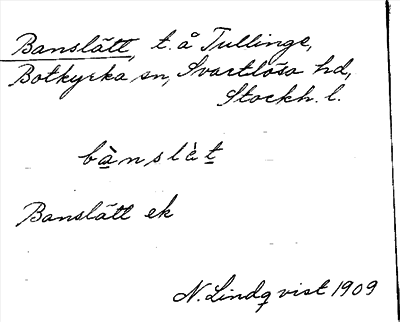 Banslätt, t. å Tullinge,
Botkyrka sn, Svartlösa hd,
Stockh. l.
bànslàt
Banslätt ek
N. Lindqvist 1909